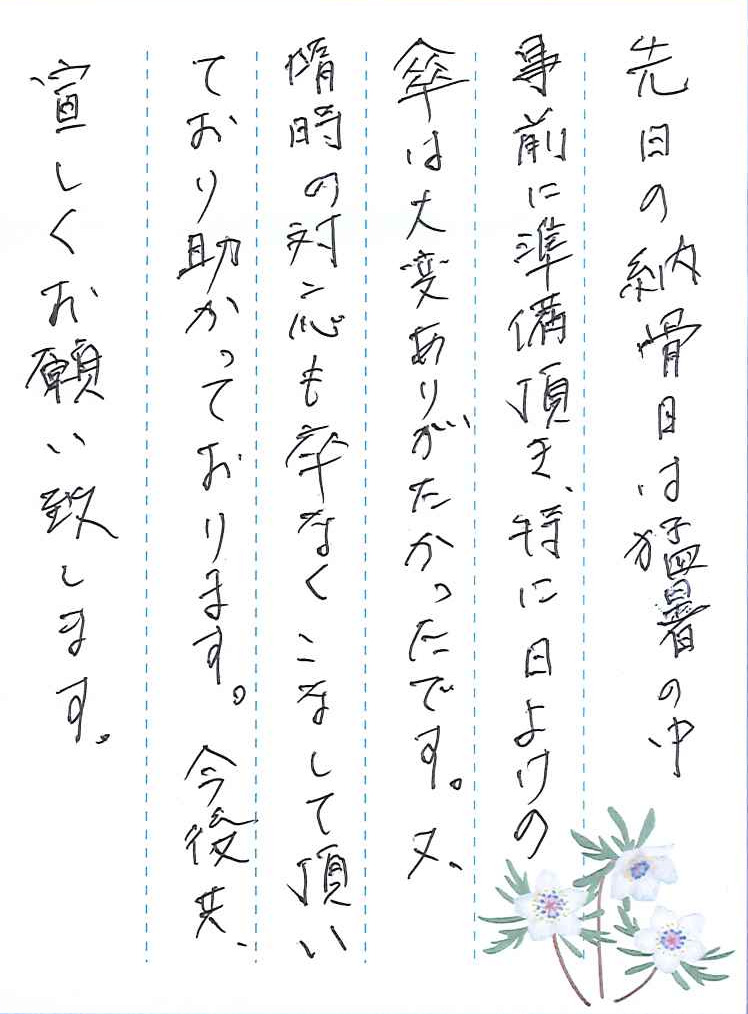 先日の納骨日は猛暑の中
事前に準備頂き、特に日よけの
傘は大変ありがたかったです。又、
隋時の対応も卒なくこなして頂い
ており助かっております。今後共、
宜しくお願い致します。